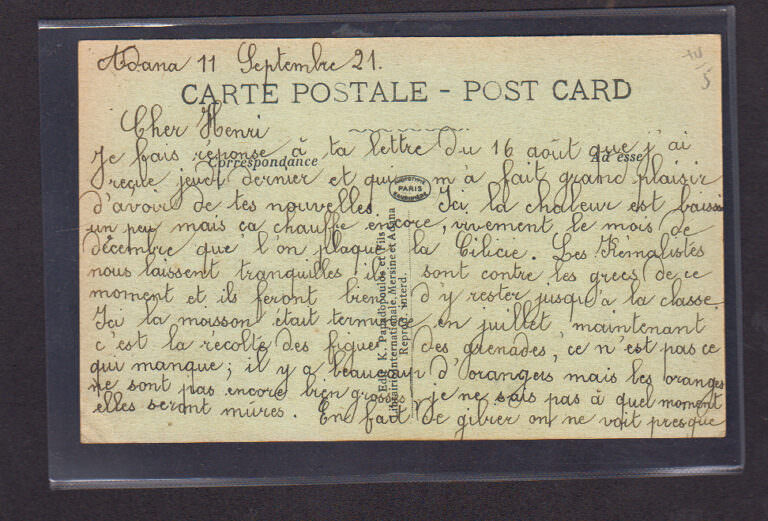 Adana 11 Septembre 21.
CARTE POSTALE - POST CARD
Cher Henri
Je fais réponse à ta lettre du 16 août que j'ai
Correspondance
Adresse
reçue jeudi dernier et qui m'a fait grand plaisir
PARIS
d'avoir de tes nouvelles. Ici la chaleur est baissé
un peu mais ça chauffe encore, vivement le mois de
décembre que l'on plaque la Cilicie. Les Kémalistes
nous laissent tranquilles ils sont contre les grecs de ce
moment et ils feront bien d'y rester jusqu'à la classe.
Ici la moisson était terminée en juillet, maintenant
c'est la récolte des figues des grenades, ce n'est pas ce
qui manque; il y a beaucoup d'orangers mais les oranges
ne sont pas encore bien grosses, je ne sais pas à quel moment
elles seront mûres. En fait de gibier on ne voit presque
Edit. K. Papadopoulos et Fils
Librairie Internationale, Mersine et Adana
Reprod. interd.